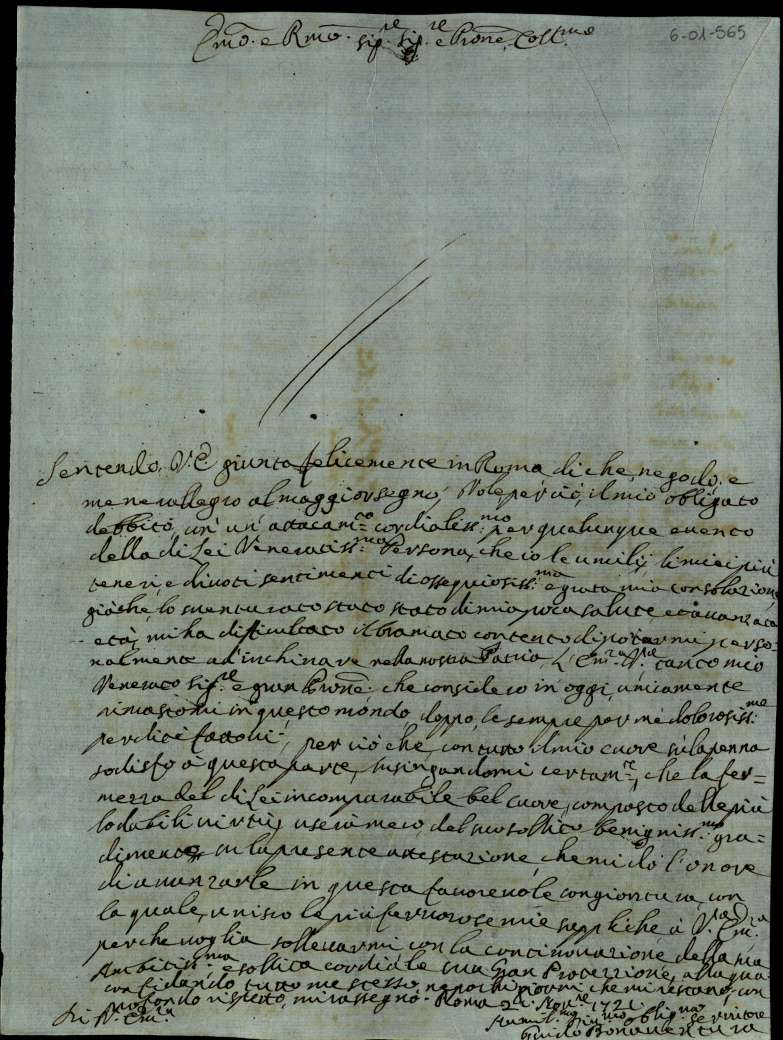 Emo. e Rmo. Sig.re Sig.re e Prone. Coll.mo
6-01-565
Sentendo V.E. giunta felicemente in Roma di che, ne godo, e
me ne rallegro al maggior segno, Vole perciò, il mio obligato
debbito, un' attacam.to cordialiss.mo per qualunque evento
della di Lei Veneratiss.ma Persona, che io le umilij li miei più
teneri, e divoti sentimenti di ossequiosiss.ma e grata mia consolazione
giache, lo sventurato stato di mia poca salute, et avanzata
età, mi ha difficultato il bramato contento di portarmi perso=
nalmente ad' inchinare nella nostra Patria, L'Em.za V.ra tanto mio
Venerato Sig.re e gran Prone. che considero in oggi, unicamente
rimastomi in questo mondo, doppo, le sempre per me dolorosiss.me
perdite fattevi, per ciò che, con tutto il mio cuore sù la penna
sodisfo à questa parte, lusingandomi certam.te, che la fer=
mezza del di Lei incomparabile bel cuore, composto delle più
lodabili virtù, userà meco del suo solito benigniss.mo gra=
dimento su la presente attestazione, che mi dò l'onore
di avanzarle in questa favorevole congiontura, con
la quale, unisco le più fervorose mie suppliche à V.ra Em.za
perche voglia sollevarmi con la continuazione della sua
Ambitiss.ma e solita cordiale sua gran Protezzione, alla qua=
confidando tutto me stesso, ne pochi giorni che mi restano, con
profondo rispetto, mi rassegno. Roma 2 di Nov.re 1721.
Di V. Em.za
Humil.mo Div.mo Oblig.mo Servitore
Guido Bonaventura